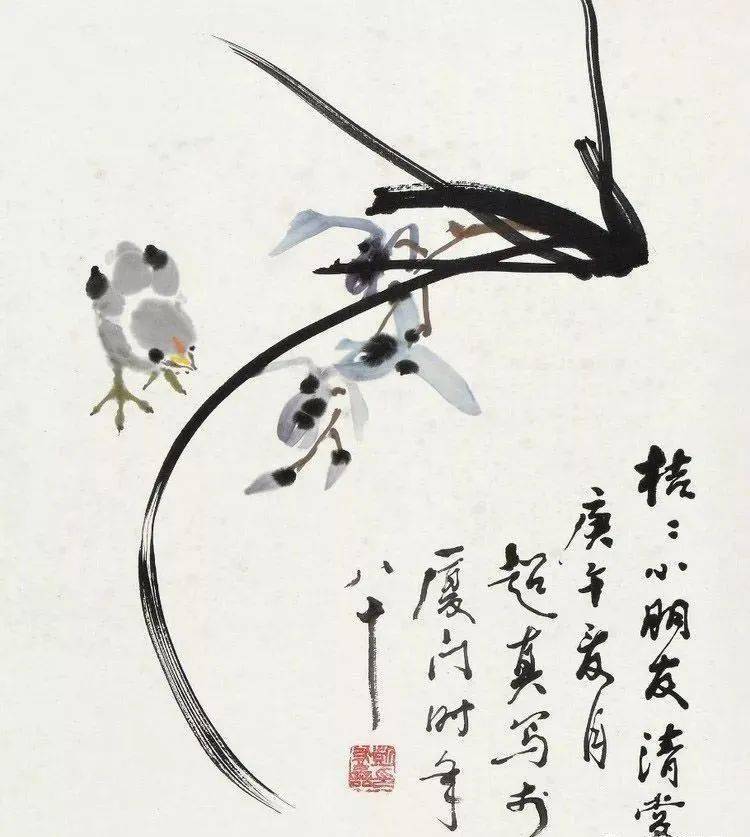 桔〻小朋友清赏
庚午夏月
超真写於
厦门时年
八十